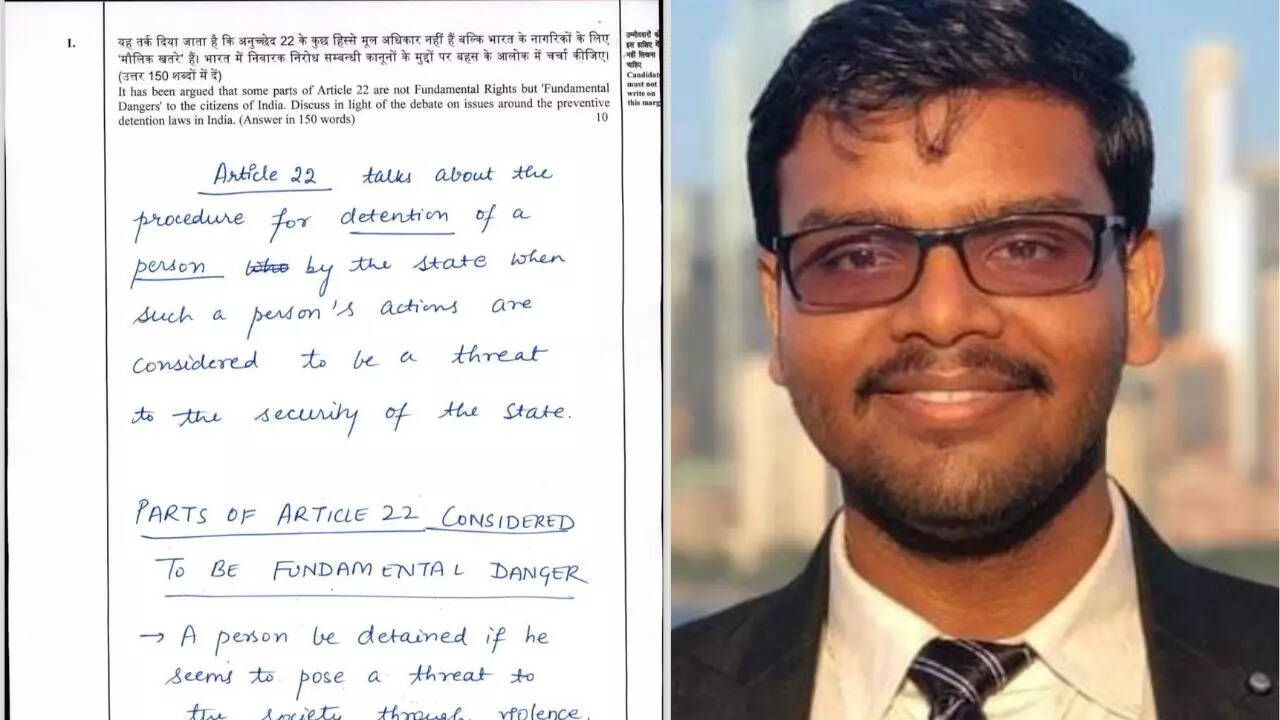 1.
यह तर्क दिया जाता है कि अनुच्छेद 22 के कुछ हिस्से मूल अधिकार नहीं हैं बल्कि भारत के नागरिकों के लिए
'मौलिक खतरे' हैं। भारत में निवारक निरोध सम्बन्धी कानूनों के मुद्दों पर बहस के आलोक में चर्चा कीजिए।
(उत्तर 150 शब्दों में दें)
It has been argued that some parts of Article 22 are not Fundamental Rights but 'Fundamental
Dangers' to the citizens of India. Discuss in light of the debate on issues around the preventive
detention laws in India. (Answer in 150 words)
10
उम्मीदवारों को
इस हाशिए में
नहीं लिखना
चाहिए
Candidat
must not
write on
this marg
Article 22 talks about the
procedure for detention of a
person by the state when
such a person's actions are
considered to be a threat
to the security of the state.
PARTS OF ARTICLE 22 CONSIDERED
TO BE FUNDAMENTAL DANGER
→ A person be detained if he
seems to pose a threat to
the society through violence.